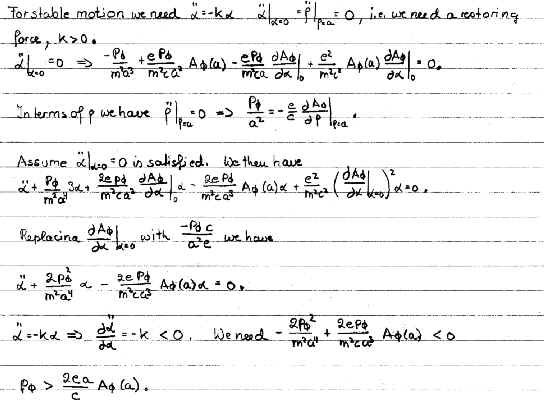 For stable motion we need α̈=-kα  α̈|α=0 = ρ̈|ρ=a = 0, i.e. we need a restoring
force, k>0.
α̈|α=0 =0 ⇒ -Pφ/m²a³ + ePφ/m²ca² Aφ(a) - ePφ/m²ca ∂Aφ/∂α|₀ + e²/m²c² Aφ(a) ∂Aφ/∂α|₀ = 0.
In terms of ρ we have ρ̈|ρ=a =0 ⇒ Pφ/a² = -e/c ∂Aφ/∂ρ|ρ=a.
Assume α̈|α=0 =0 is satisfied. We then have
α̈ + Pφ/m²a⁴ 3α + 2ePφ/m²ca² ∂Aφ/∂α|₀ α - 2ePφ/m²ca³ Aφ(a)α + e²/m²c² (∂Aφ/∂α|α=0)² α=0.
Replacing ∂Aφ/∂α|α=0 with -Pφc/a²e we have
α̈ + 2Pφ²/m²a⁴ α - 2ePφ/m²ca³ Aφ(a)α = 0.
α̈=-kα ⇒ dα̈/dα = -k < 0. We need -2Pφ²/m²a⁴ + 2ePφ/m²ca³ Aφ(a) < 0
Pφ > 2ea/c Aφ(a).